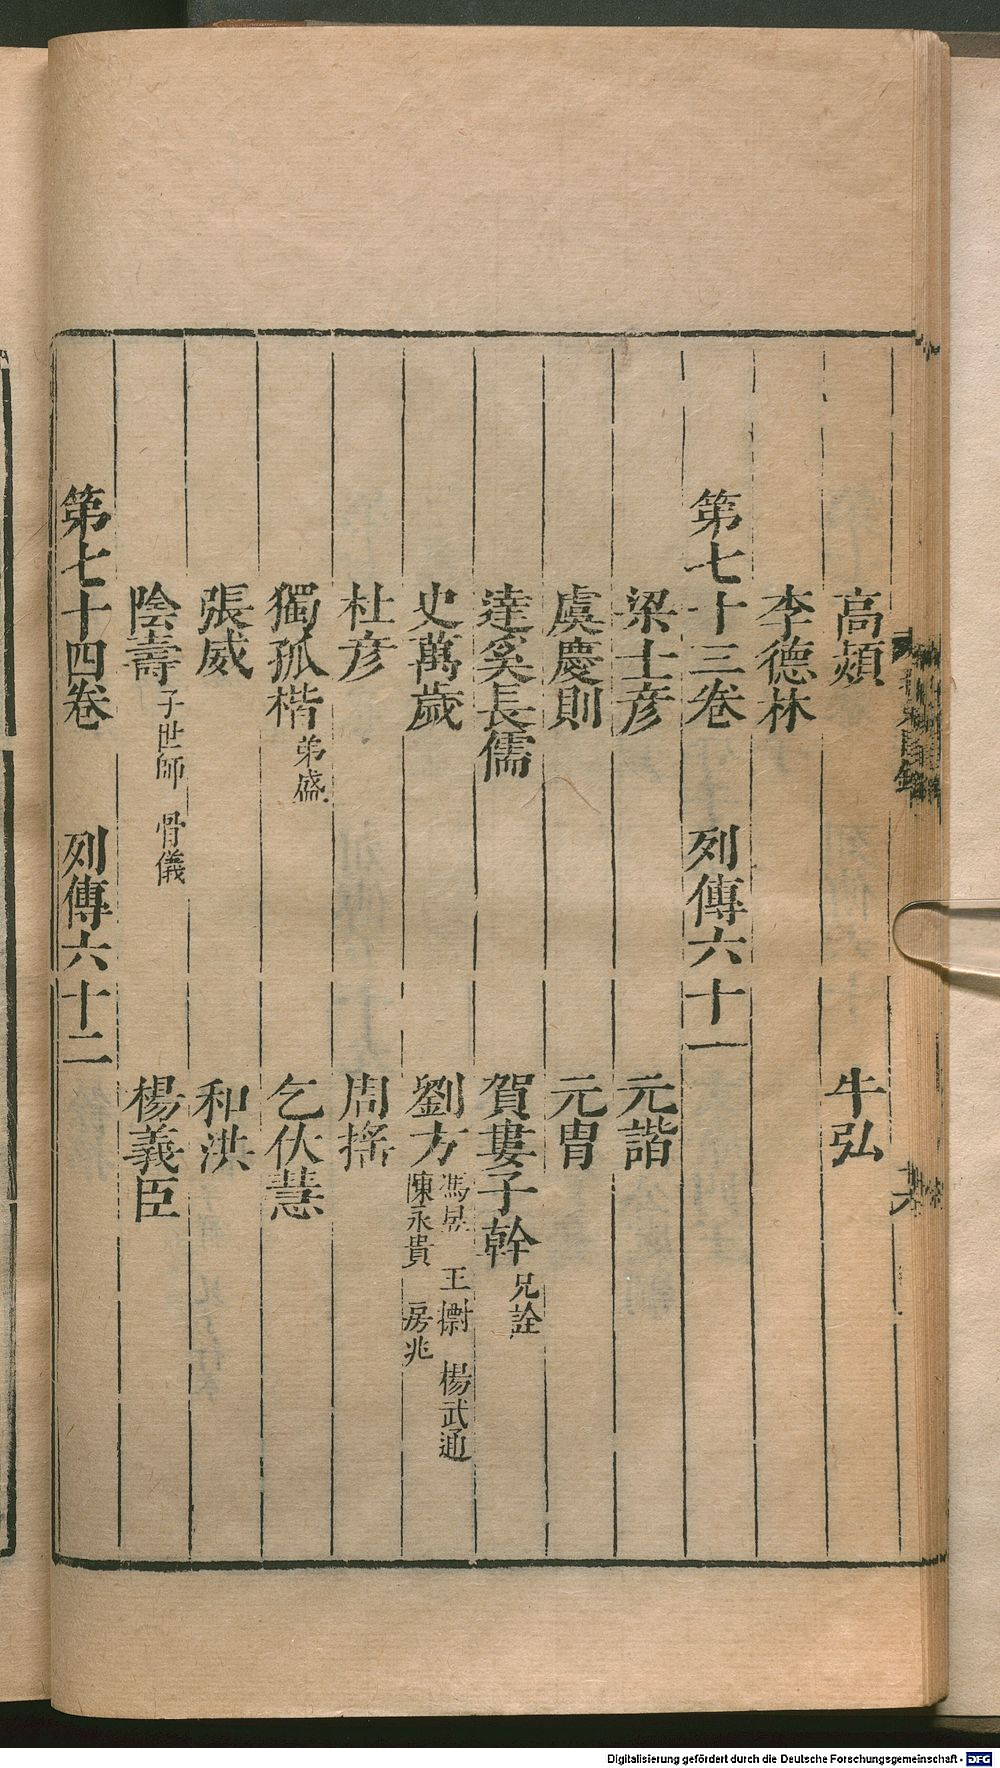 高熲 牛弘
李德林
第七十三卷 列傳六十一
梁士彦 元諧
虞慶則 元冑
達奚長儒 賀婁子幹 兄詮
史萬歲 劉方 馮昱 王𢷋 楊武通 陳永貴 房兆
杜彦 周搖
獨孤楷 弟盛 乞伏慧
張威 和洪
陰壽 子世師 骨儀 楊義臣
第七十四卷 列傳六十二
Digitalisierung gefördert durch die Deutsche Forschungsgemeinschaft - DFG